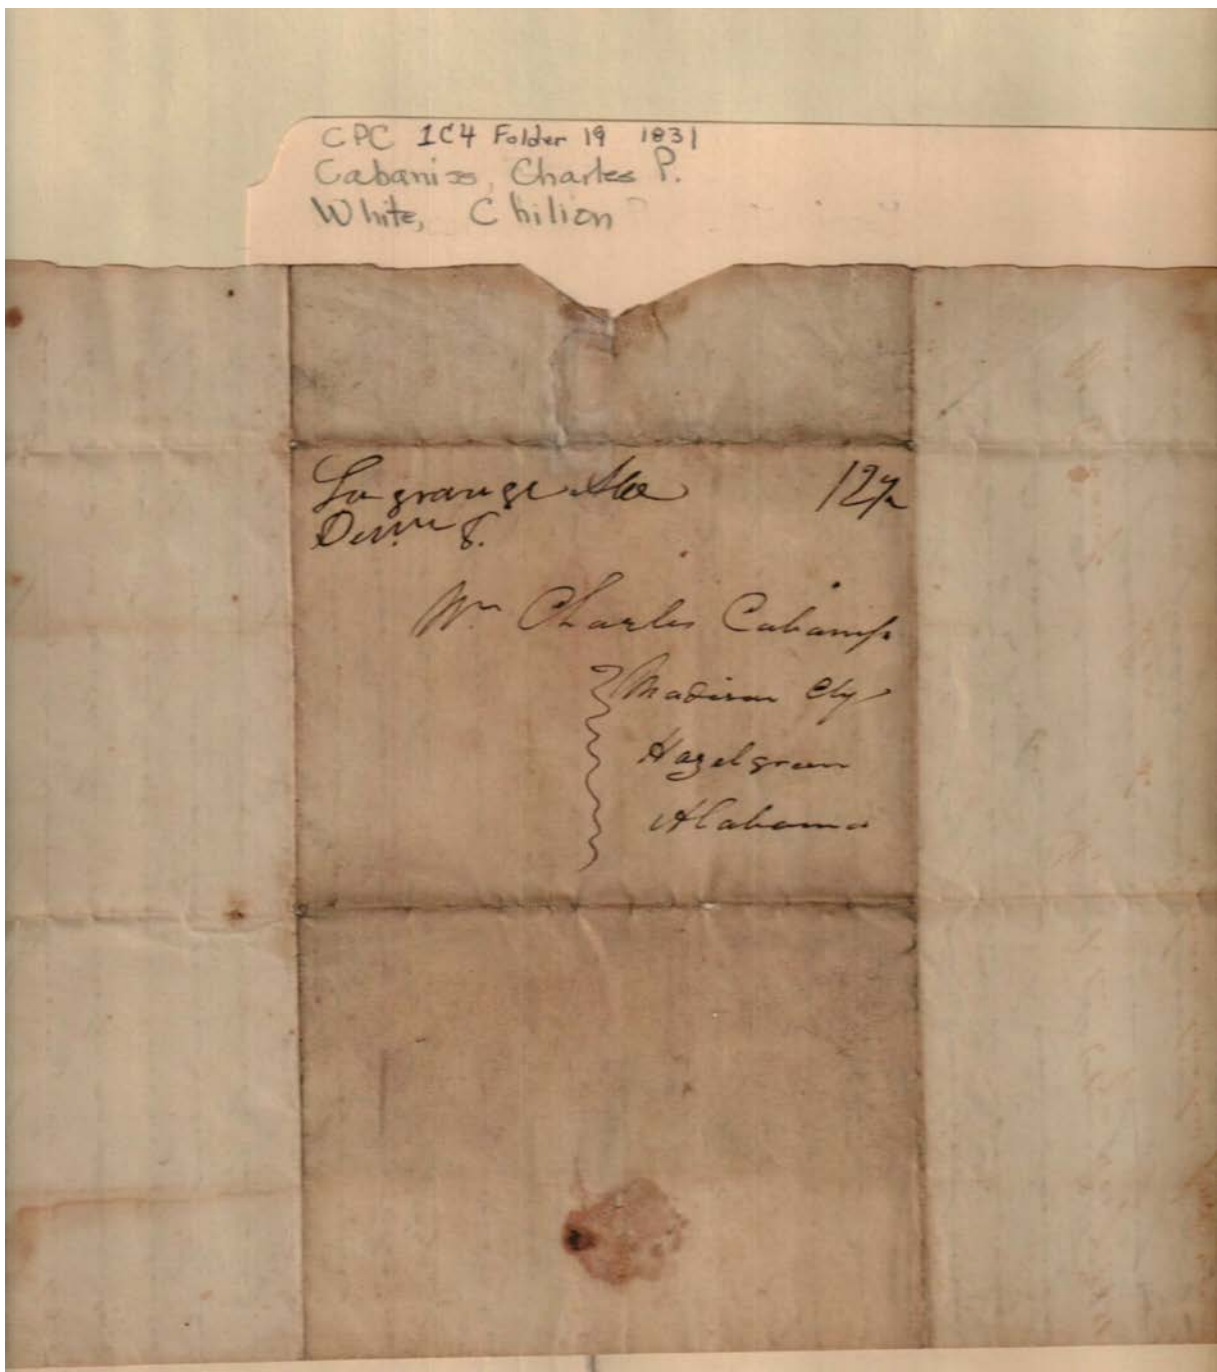 CPC 1C4 Folder 19 1831
Cabaniss, Charles P.
White, Chilion
Lagrange Ala 12½
Decm 8.
Mr Charles Cabaniss
Madison Cty
Hazelgreen
Alabama